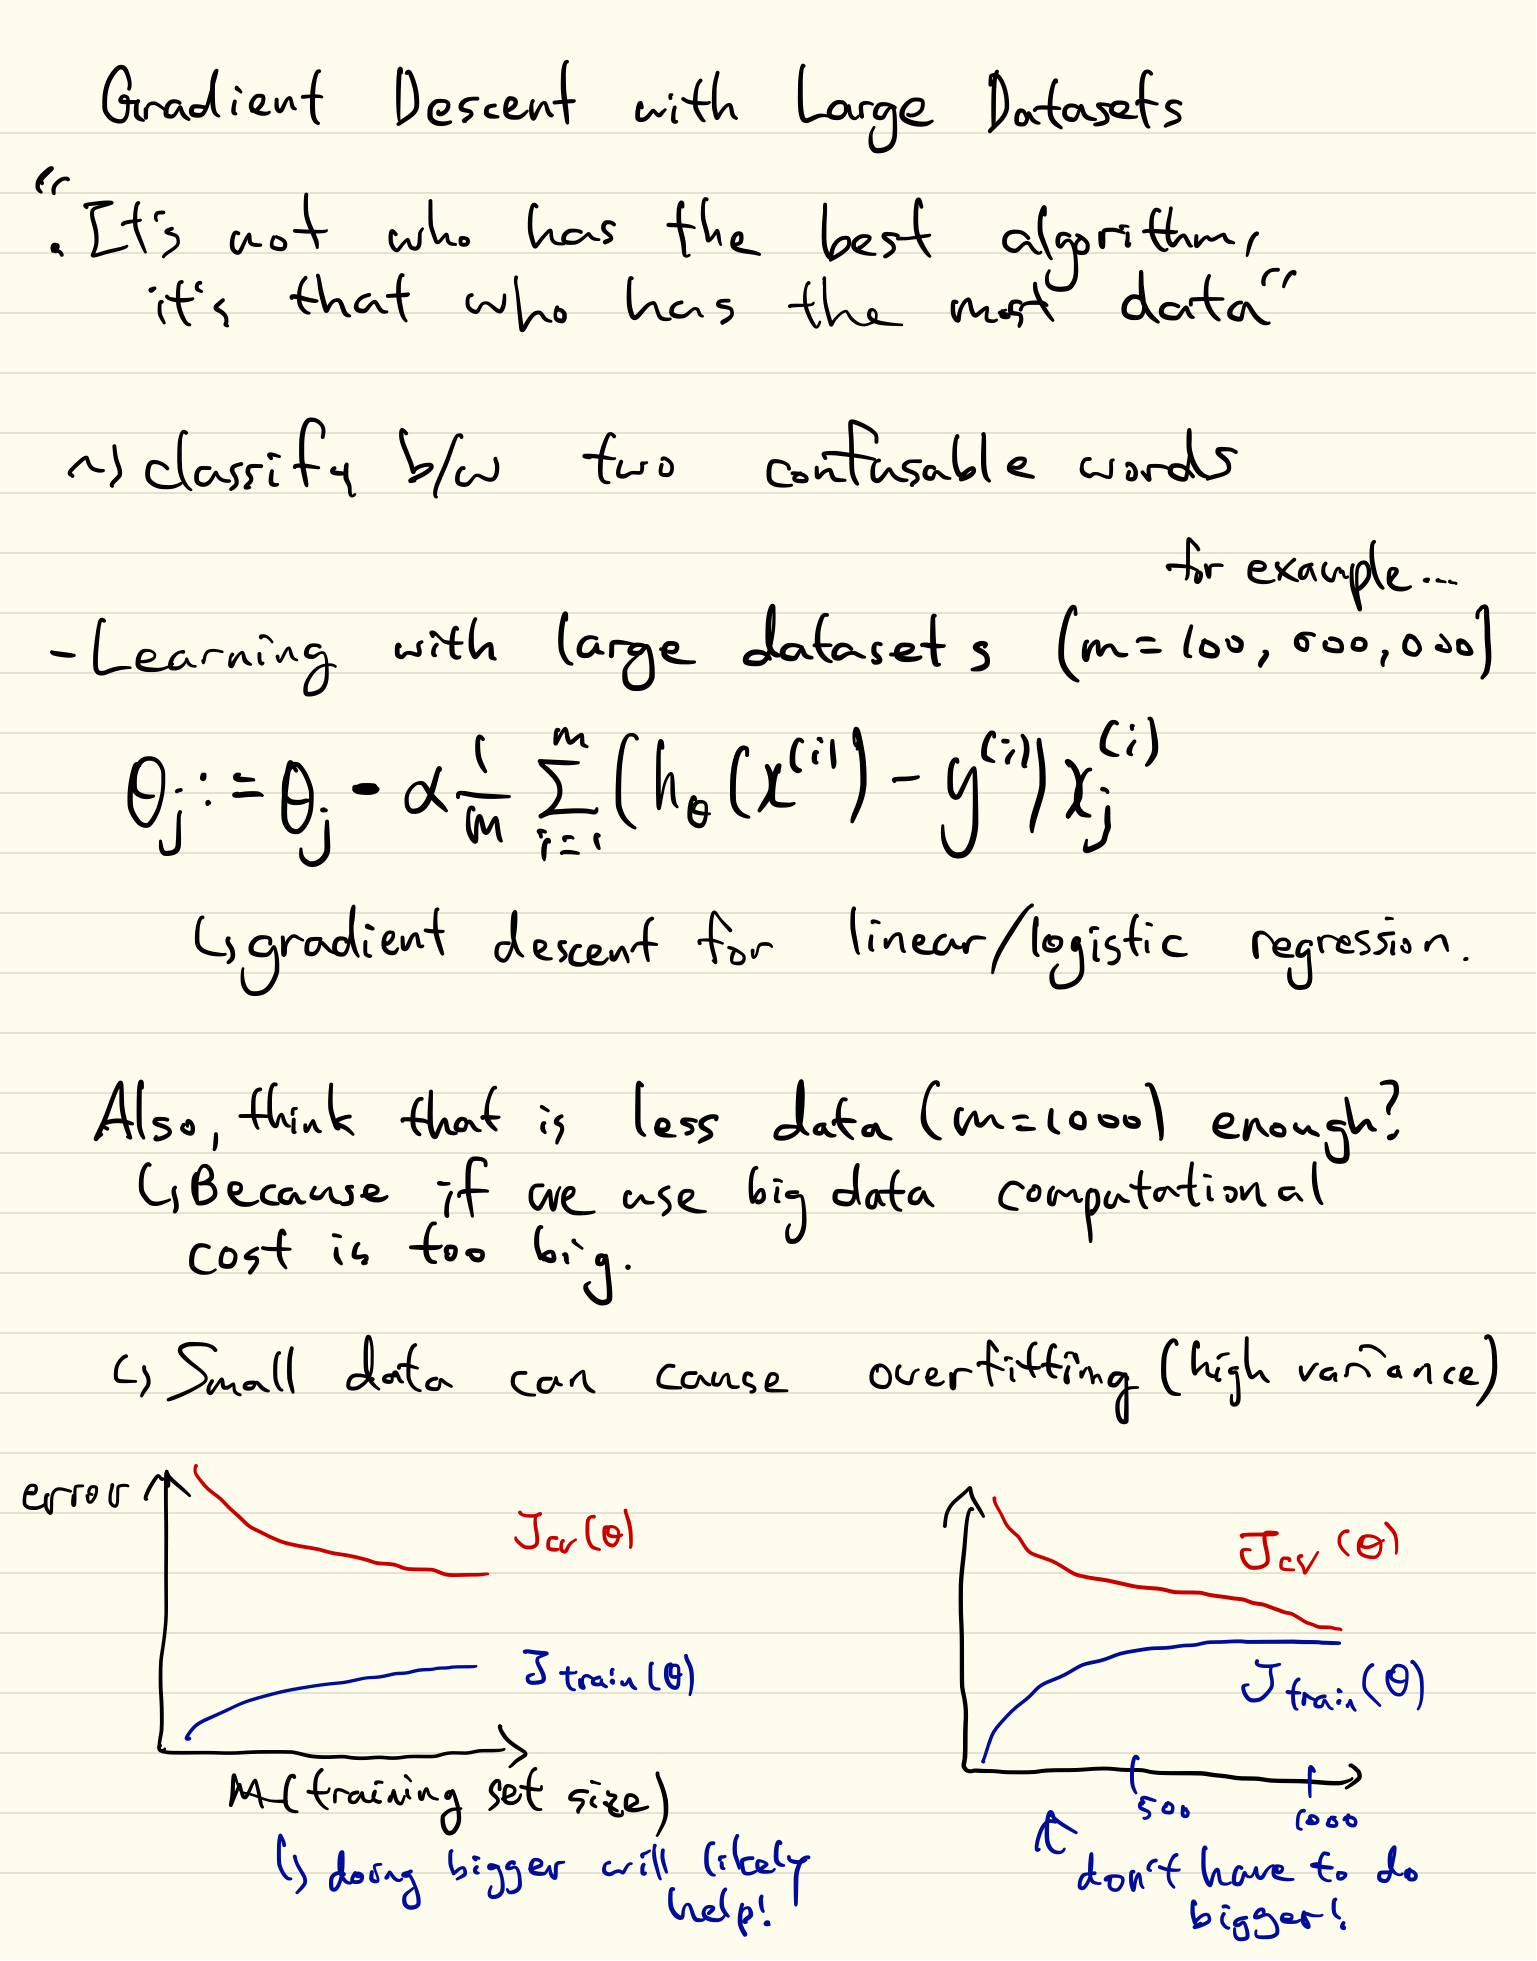 Gradient Descent with Large Datasets
"
. It's not who has the best algorithm,
it's that who has the most data"
~> classify b/w two confusable words
for example...
- Learning with large datasets (m = 100,000,000)
θj := θj - α 1/m Σ_{i=1}^{m} (hθ(x^(i)) - y^(i)) xj^(i)
↳ gradient descent for linear/logistic regression.
Also, think that is less data (m=1000) enough?
↳ Because if we use big data computational
cost is too big.
↳ Small data can cause overfitting (high variance)
error
Jcv(θ)
Jtrain(θ)
M (training set size)
↳ doing bigger will likely
help!
Jcv(θ)
Jtrain(θ)
500
1000
don't have to do
bigger!